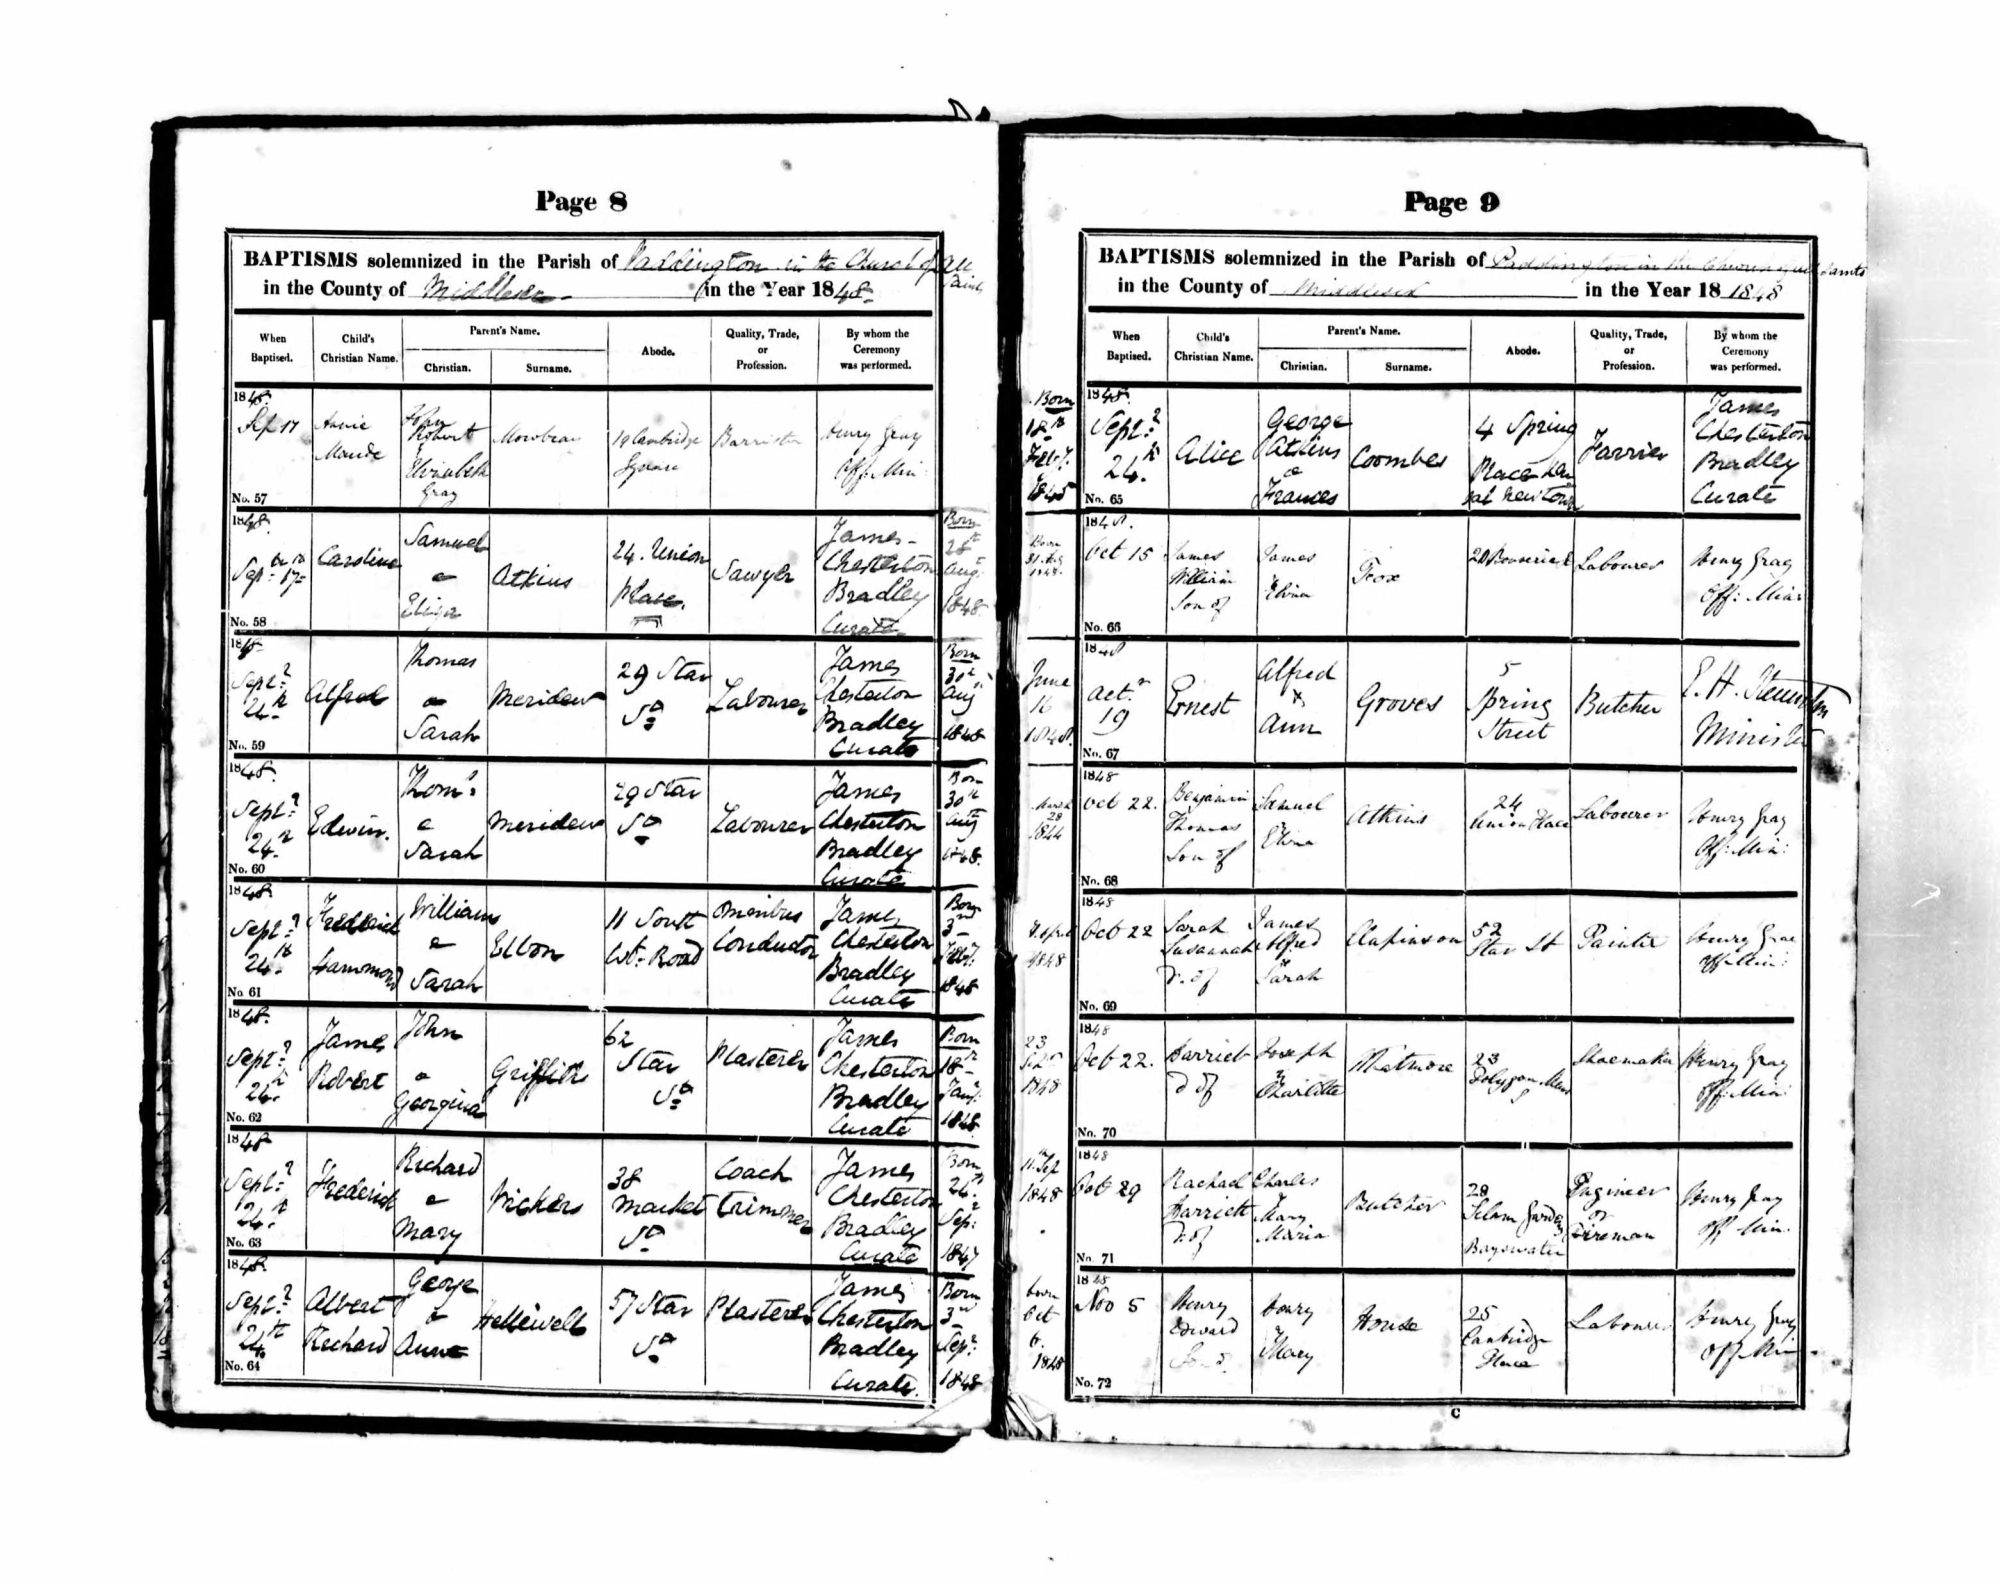 Page 8
BAPTISMS solemnized in the Parish of Paddington in the Church of All Saints
in the County of Middlesex in the Year 1848
When Baptised.
Child's Christian Name.
Parent's Name.
Christian.
Surname.
Abode.
Quality, Trade, or Profession.
By whom the Ceremony was performed.
1848.
Sep 17
Annie
Maude
John
Robert
Elizabeth
Gray
Mowbray
19 Cambridge
Square
Barrister
Henry Gray
Off: Min:
No. 57
1848.
17
Caroline
Samuel
&
Eliza
Atkins
24. Union
Place.
Sawyer
James
Chesterton
Bradley
Curate
Born
28th
Aug.
1848
No. 58
1848
Sept.
24.
Alfred
Thomas
&
Sarah
Meriden
29 Star
St
Labourer
James
Chesterton
Bradley
Curate
Born
30th
Aug
1848
No. 59
1848.
Sept.
24.
Edwin.
Thom.s
&
Sarah
Meriden
29 Star
St
Labourer
James
Chesterton
Bradley
Curate
Born
30th
Aug
1848.
No. 60
1848.
Sept.
24.
Frederick
Hammond
William
&
Sarah
Elbon
11 South
Wf. Road
Omnibus
Conductor
James
Chesterton
Bradley
Curate
Born
3rd
Feb.
1848
No. 61
1848.
Sept.
24.
James
Robert
John
&
Georgina
Griffiths
62
Star
St
Plasterer
James
Chesterton
Bradley
Curate
Born
18th
Jan.
1848
No. 62
1848
Sept.
24.
Frederick
Richard
&
Mary
Vickers
38
Market
St
Coach
Trimmer
James
Chesterton
Bradley
Curate
Born
24th
Sep.
1847
No. 63
1848.
Sept.
24th
Albert
Richard
George
&
Anne
Helliwell
57 Star
St
Plasterer
James
Chesterton
Bradley
Curate.
Born
3rd
Sep.
1848
No. 64
Page 9
BAPTISMS solemnized in the Parish of Paddington in the Church of All Saints
in the County of Middlesex in the Year 18 1848
When Baptised.
Child's Christian Name.
Parent's Name.
Christian.
Surname.
Abode.
Quality, Trade, or Profession.
By whom the Ceremony was performed.
Born
18th
Feb.
1848.
Sept.
24.
Alice
George
Atkins
&
Frances
Coombes
4 Spring
Place
Farrier
James
Chesterton
Bradley
Curate
No. 65
Born
31. Aug
1848.
1848.
Oct 15
James
William
Son of
James
Fox
Labourer
Henry Gray
Off: Min:
No. 66
June
16
1848.
1848
Oct.
19
Ernest
Alfred
&
Ann
Groves
5
Spring
Street
Butcher
E. H.
Minister
No. 67
March
28
1844
1848
Oct 22.
Benjamin
Thomas
Son of
Samuel
Atkins
24
Union Place
Labourer
Henry Gray
Off: Min:
No. 68
1848
1848
Oct 22
Sarah
Susannah
D. of
James
Alfred
Sarah
52
Star St
Painter
Henry Gray
Off Min:
No. 69
23
1848
1848
Oct 22.
Harriet
D of
Joseph
&
Charlotte
Wetmore
23
Polygon Mews
Shoemaker
Henry Gray
Off: Min:
No. 70
11th Sep
1848
1848
Oct 29
Rachael
Harriett
D. of
Charles
Mary
Maria
Butcher
Bayswater
Engineer
or
Fireman
Henry Gray
Off Min:
No. 71
born
Oct
6.
1848
1848
Nov 5
Henry
Edward
Henry
Mary
House
25
Cambridge
Place
Labourer
Henry Gray
Off Min
No. 72
C